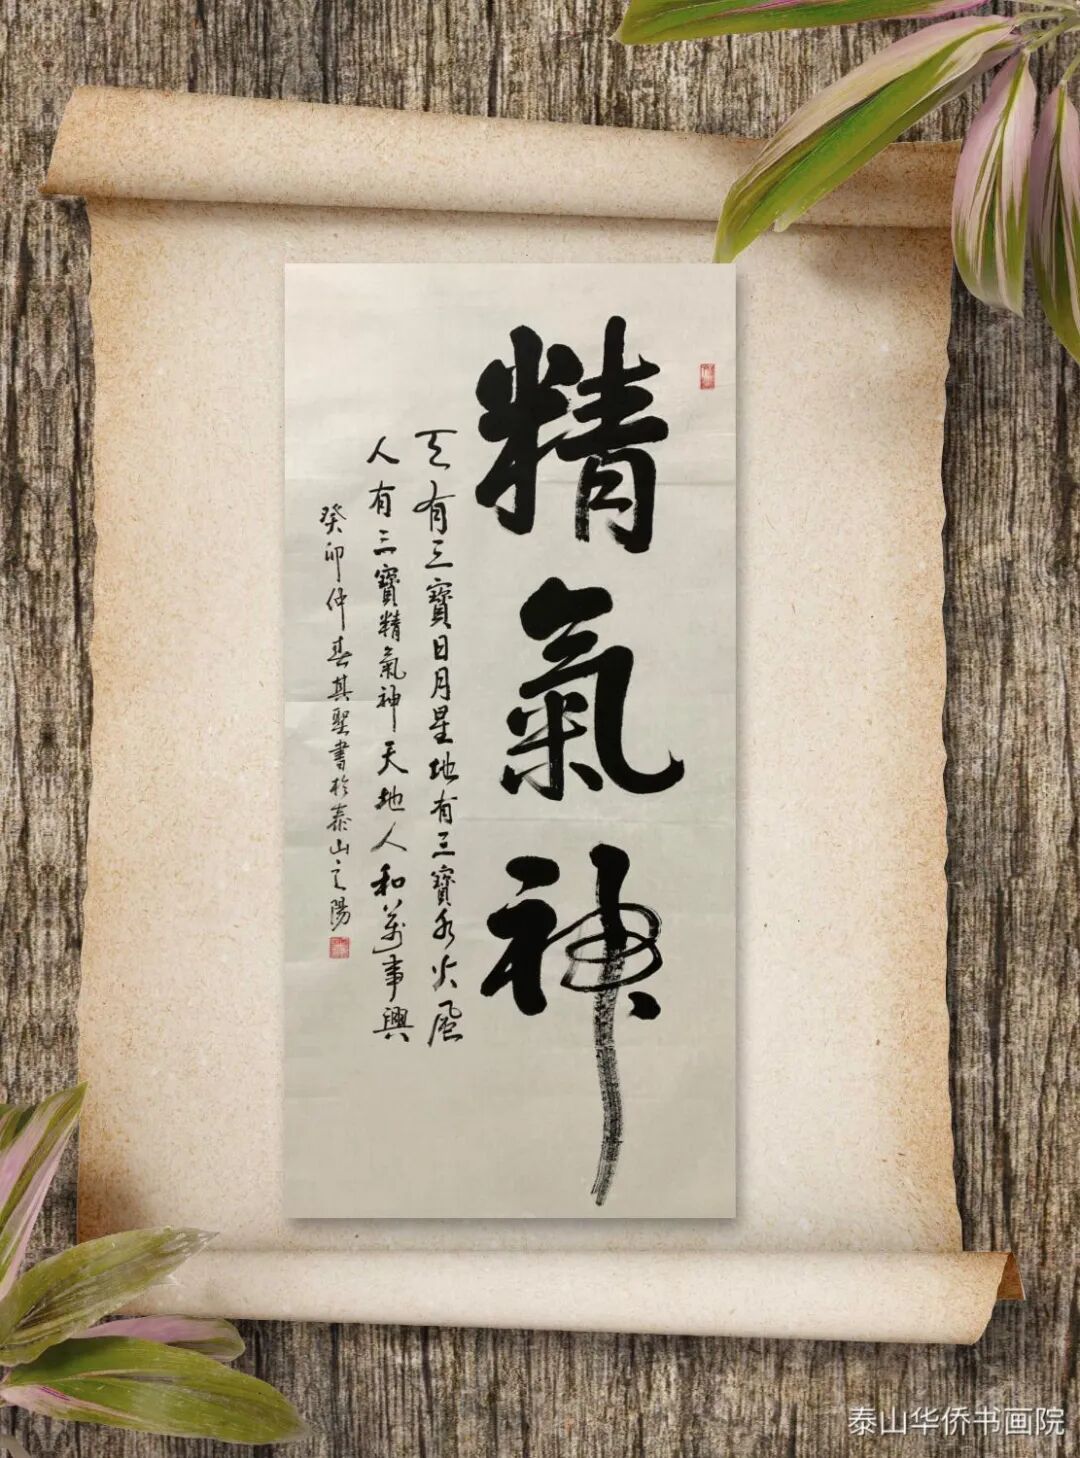 精氣神
天有三寶日月星地有三寶水火風
人有三寶精氣神天地人和萬事興
癸卯仲春其聖書於泰山之陽
泰山华侨书画院